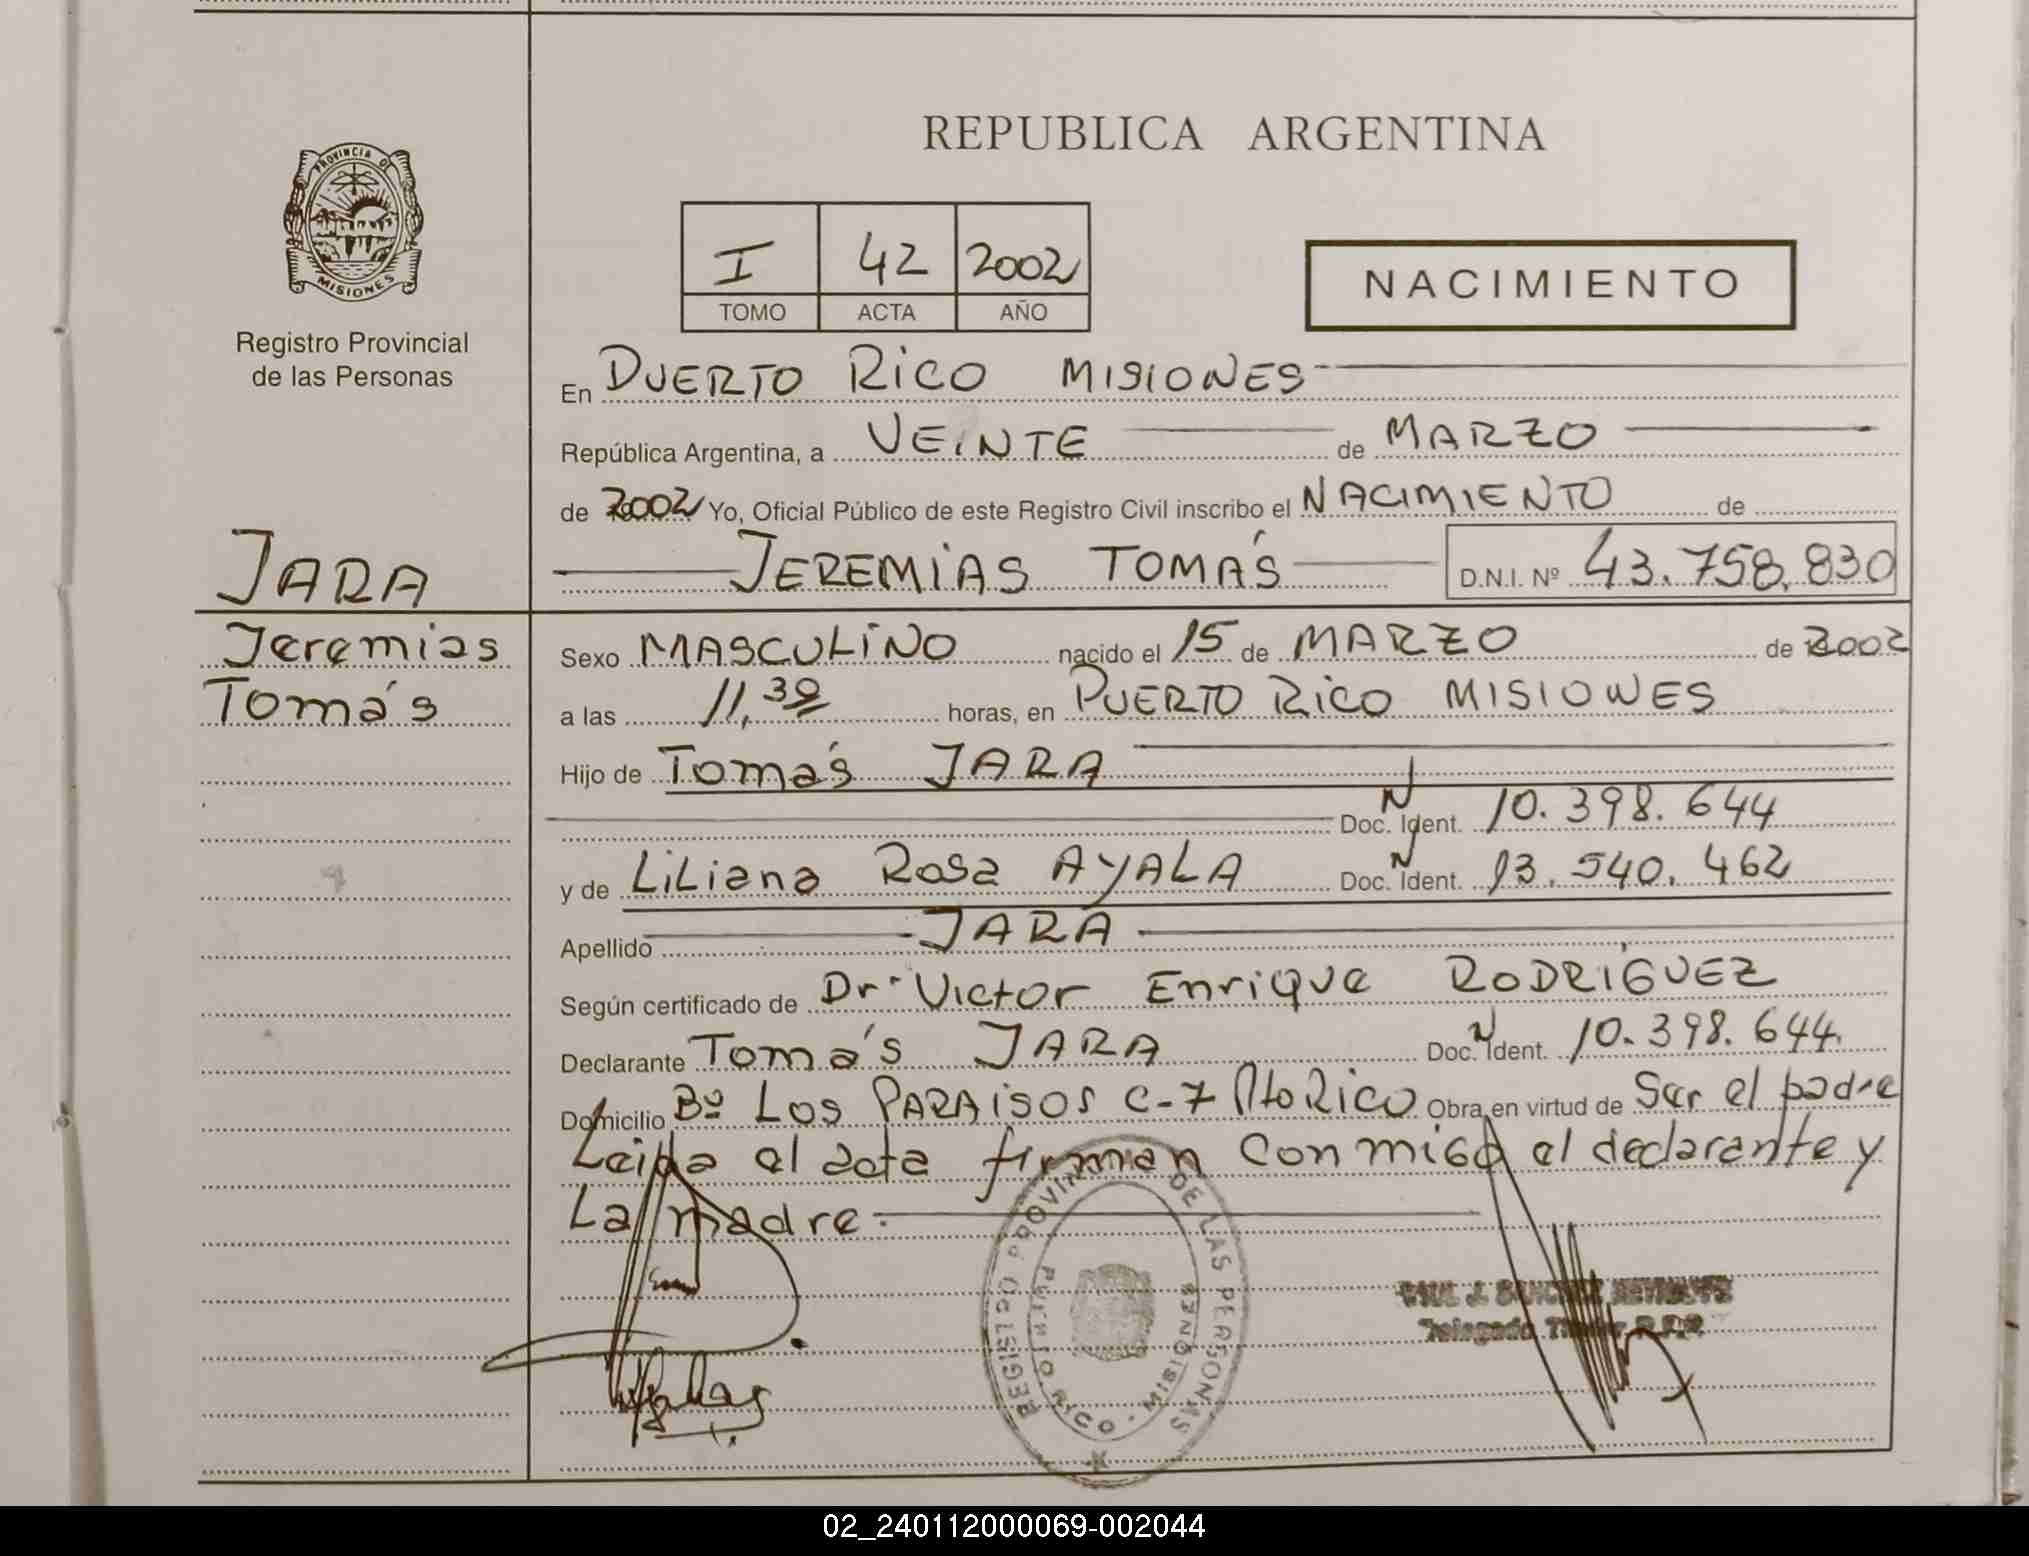 REPUBLICA ARGENTINA
PROVINCIA DE
MISIONES
Registro Provincial
de las Personas
I 42 2002
TOMO ACTA AÑO
NACIMIENTO
En PUERTO RICO MISIONES
República Argentina, a VEINTE de MARZO
de 2002 Yo, Oficial Público de este Registro Civil inscribo el NACIMIENTO de
JARA
JEREMIAS TOMÁS D.N.I. Nº 43.758.830
Jeremias
Tomás
Sexo MASCULINO nacido el 15 de MARZO de 2002
a las 11,30 horas, en PUERTO RICO MISIONES
Hijo de Tomás JARA
Doc. Ident. 10.398.644
y de Liliana Rosa AYALA Doc. Ident. 13.540.462
Apellido JARA
Según certificado de Dr. Victor Enrique RODRÍGUEZ
Declarante Tomás JARA Doc. Ident. 10.398.644
Domicilio Bº Los PARAISOS C-7 Pto Rico Obra en virtud de Ser el padre
Leida el acta firman conmigo el declarante y
La madre.
REGISTRO PROVINCIAL DE LAS PERSONAS
PUERTO RICO - MISIONES
Delegado Titular R.P.P.
02_240112000069-002044